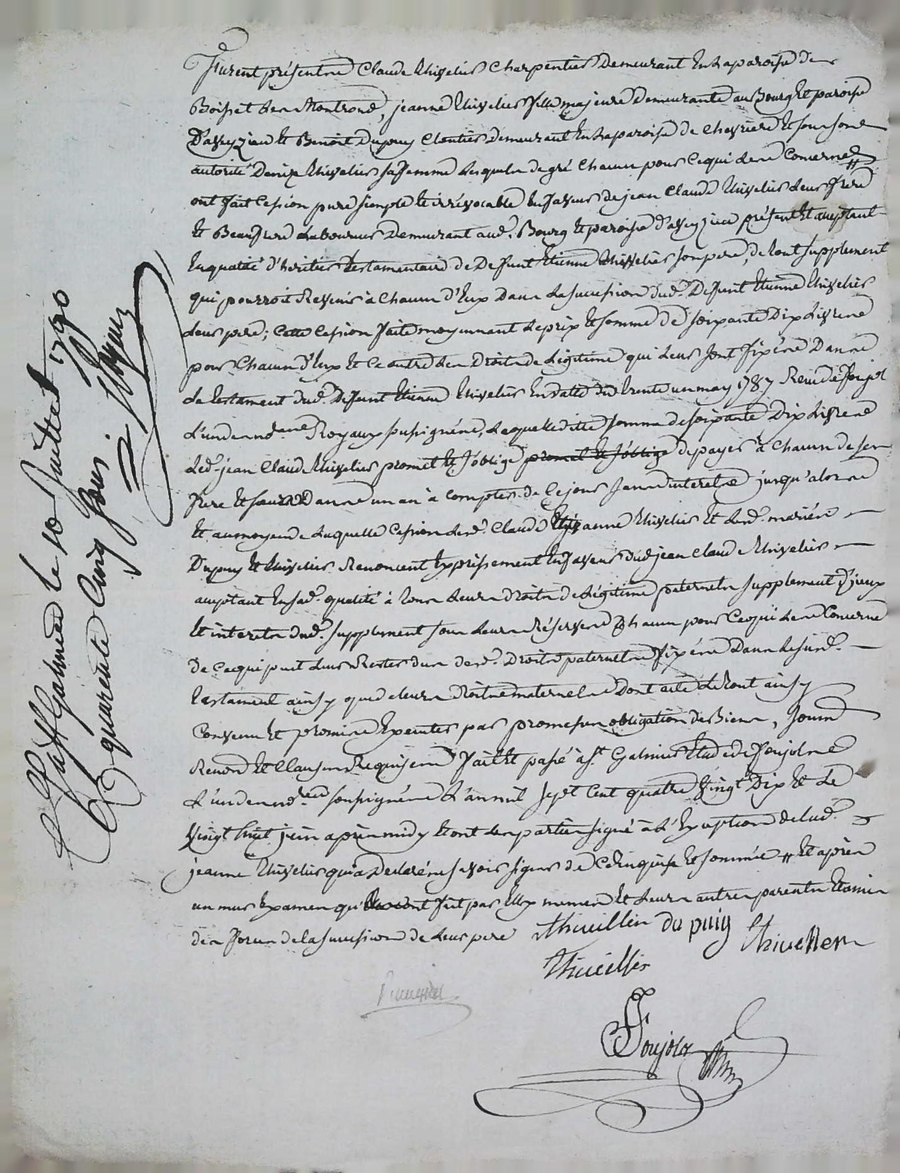 Furent présents Claude Thivelier Charpentier Demeurant En la paroisse de
Boisset les Montrond, jeanne Thivelier fille majeure demeurante au Bourg Et paroisse
D'aveyzieu Et Benoit Dupuy Cloutier Demeurant En la paroisse de Chevrières Et sous son
autorité Thivelier sa femme lesquels de gré Chacun pour Ce qui les Concerne
ont fait Cession pure simple Et irrévocable En faveur de jean Claude Thivelier leur frère
Et Beaufrere Laboureur Demeurant aud. Bourg Et paroisse D'aveyzieu présent Et acceptant
En qualité d'heritier Testamentaire de Defunt Etienne Thivelier son pere de tout supplement
qui pourroit Revenir à Chacun d'Eux Dans La succession dud. Defunt Etienne Thivelier
leur pere; Cette Cession faite moyennant Le prix Et somme de soixante Dix Livres
pour Chacun d'Eux Et Ce outre les Droits de Légitime qui leur sont fixés Dans
Le testament dud. Defunt Etienne Thivelier En datte du trente un may 1787 Reçu
L'un des no.res Royaux soussignés, Laquelle ditte somme de soixante Dix Livres
Led. jean Claude Thivelier promet Et s'oblige promet Et s'oblige de payer à Chacun de ses
frere Et sœurs Dans un an à Compter de Ce jour sans interets jusqu'alors
Et au moyen de Laquelle Cession Lesd. Claude Et jeanne Thivelier Et Lesd. mariés
Dupuy Et Thivelier Renoncent Expressément En faveur dud. jean Claude Thivelier
acceptant En sad. qualité à tous leurs droits de Légitime paternels supplement d'iceux
Et interets dud. supplement sous leurs Réserves Chacun pour Ce qui les Concerne
de Ce qui peut leur Rester du des d. Droits paternels fixés Dans le sud.
testament ainsy que de leurs droits maternels Dont acte Le tout ainsy
Convenu Et promis Executer par promesses obligation de Biens, soum.
Renon. Et Clauses Requises fait Et passé à St Galmier Etude de Foujols
L'un des no.res soussignés L'an mil sept Cent quatre Vingt Dix Et Le
Vingt huit juin après midy Et ont les parties signé à L'Exception de lad.
jeanne Thivelier qui a Declaré ne savoir signer de Ce Enquise Et sommée Et après
un mur Examen qui fait par Eux mêmes Et leurs autres parents Et amis
des forces de la succession de leur pere Thivellier du puy thivellier
Thivellier
Foujols
St Galmier le 10 juillet 1790
quarante Cinq sous